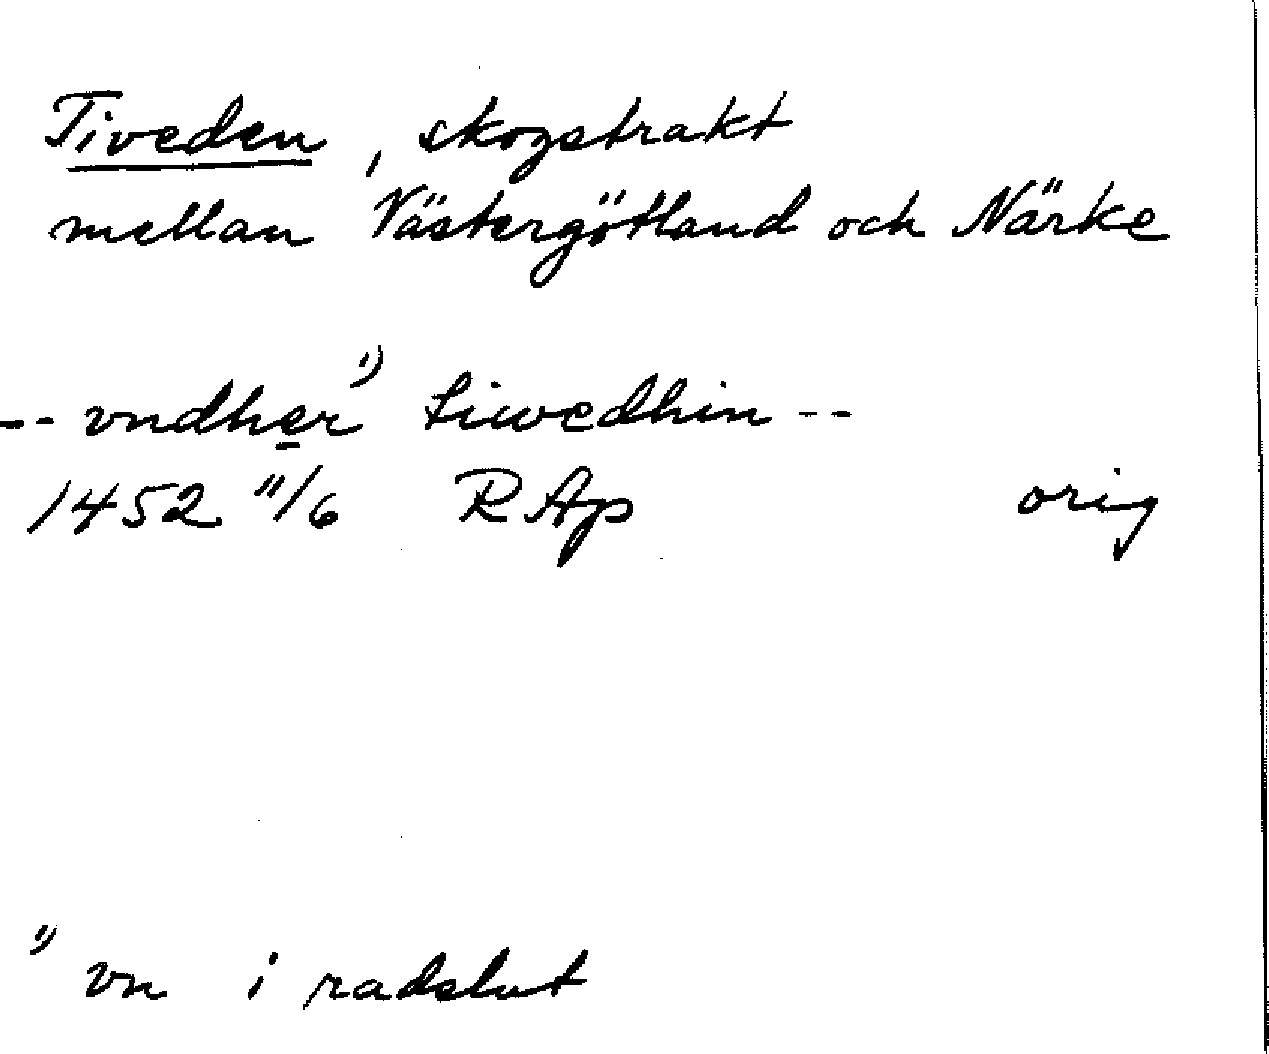 Tiveden, skogstrakt
mellan Västergötland och Närke
-- vndher ¹) tiwedhin --
1452 11/6 RAp orig
¹) vn i radslut